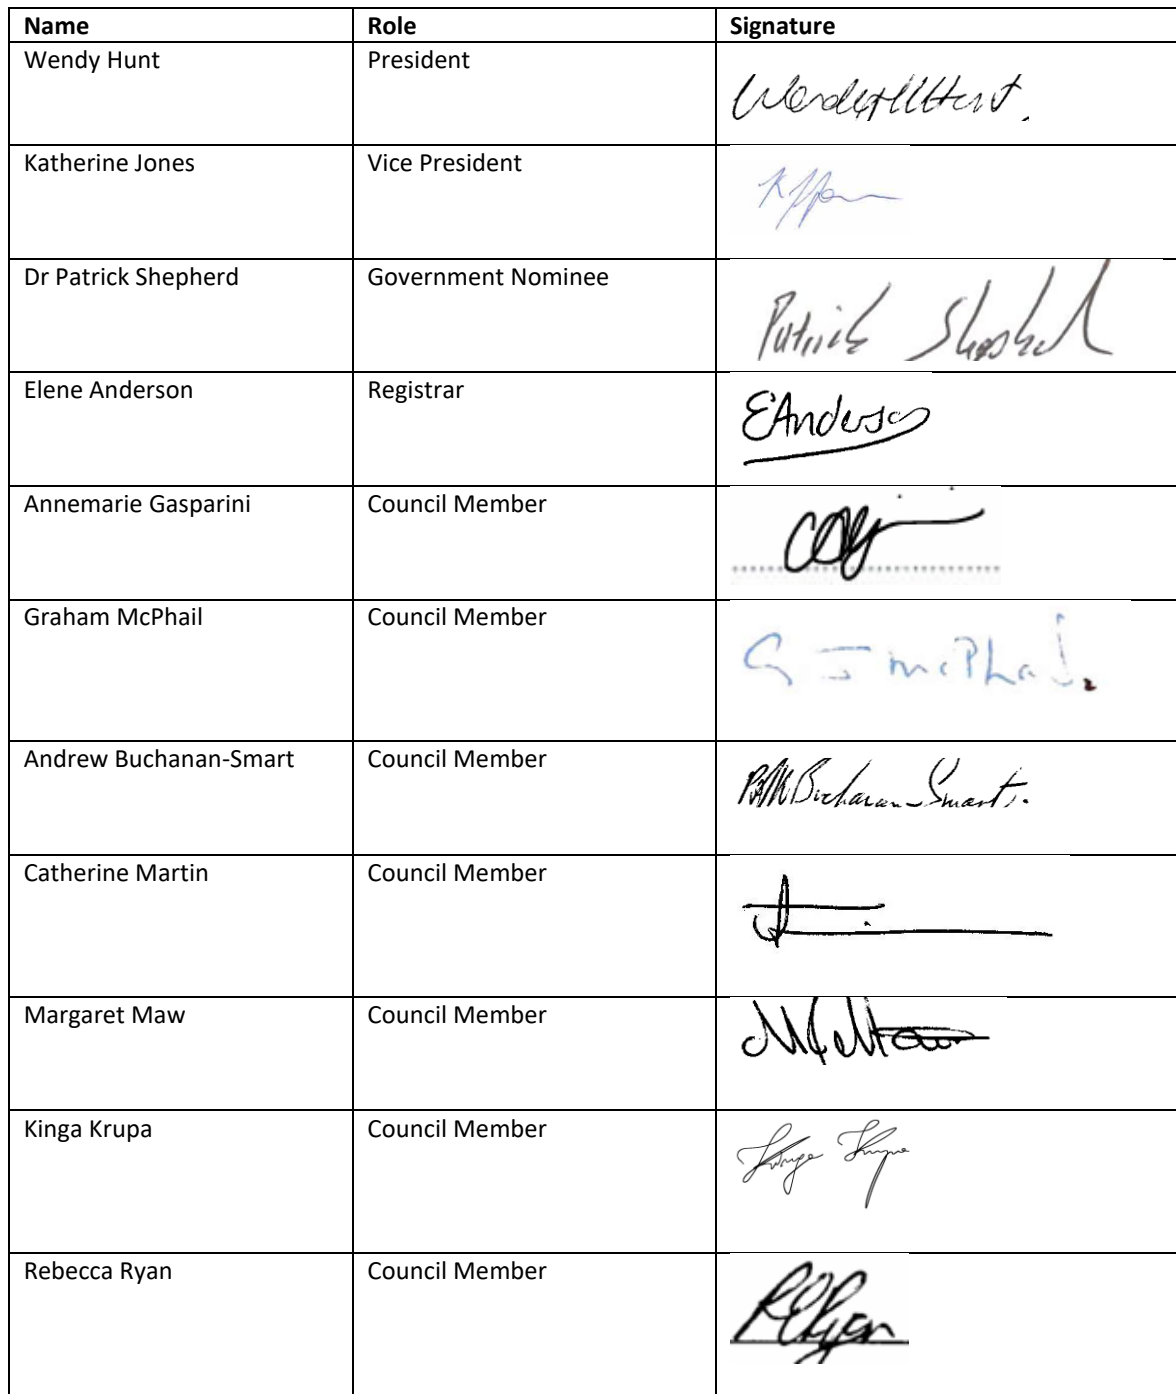 Name Role Signature
Wendy Hunt President
Katherine Jones Vice President
Dr Patrick Shepherd Government Nominee
Patrick
Elene Anderson Registrar
EAnderson
Annemarie Gasparini Council Member
Graham McPhail Council Member
G J McPhail
Andrew Buchanan-Smart Council Member
Buchanan-Smart
Catherine Martin Council Member
Margaret Maw Council Member
Kinga Krupa Council Member
Kinga Krupa
Rebecca Ryan Council Member
RERyan